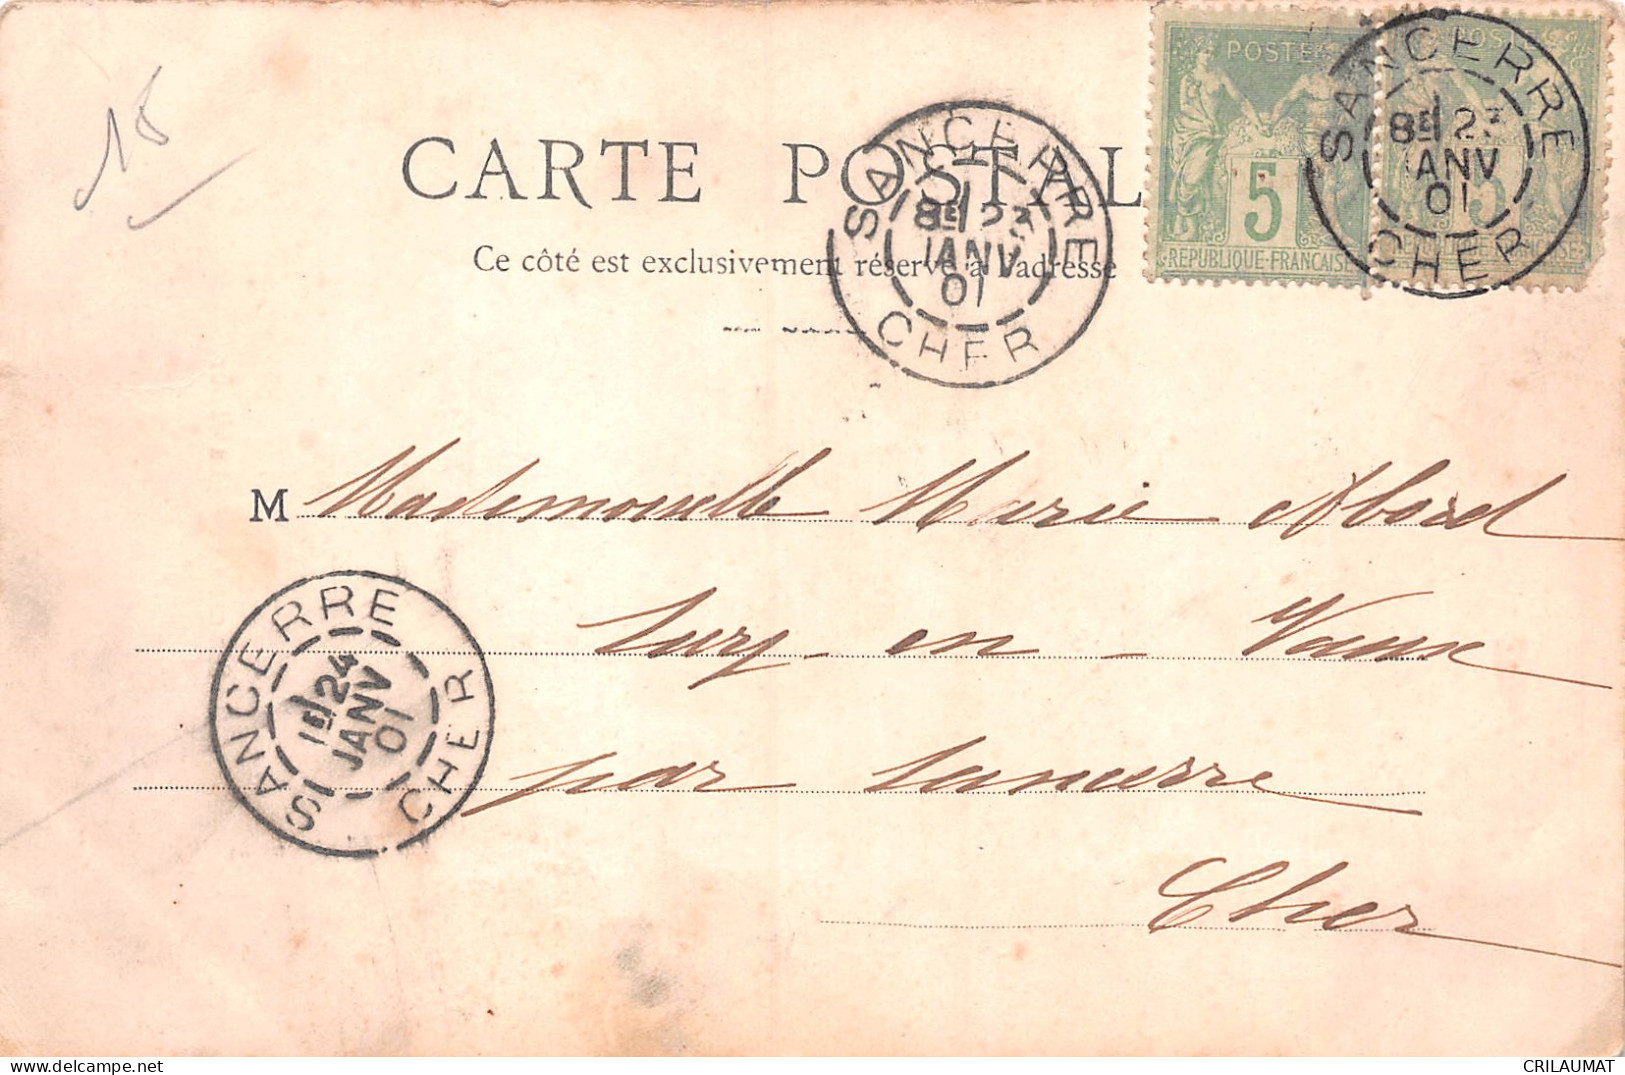 18
CARTE POSTAL
Ce côté est exclusivement réservé à l'adresse
POSTE
5
REPUBLIQUE FRANCAISE
SANCERRE
8E 23
JANV
01
CHER
SANCERRE
8E 23
JANV
01
CHER
M Mademoiselle Marie Abord
Sury-en-Vaux
par Sancerre
Cher
SANCERRE
1E 24
JANV
01
CHER
CRILAUMAT